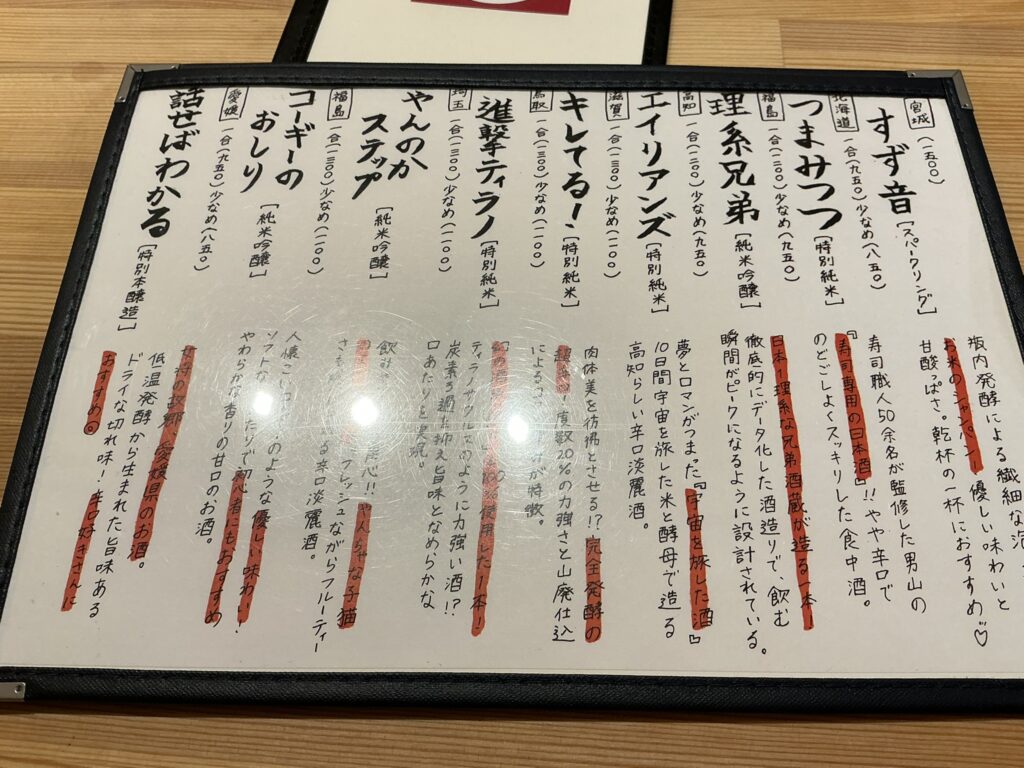 宮城
(一五〇〇)
すず音
[スパークリング]
瓶内発酵による繊細な泡
お米のシャンパン!優しい味わいと
甘酸っぱさ。乾杯の一杯におすすめ♡
北海道
一合(九五〇)少なめ(八五〇)
つまみつつ
[特別純米]
寿司職人50余名が監修した男山の
『寿司専用の日本酒』!!やや辛口で
のどごしよくスッキリした食中酒。
福島
一合(一二〇〇)少なめ(九五〇)
理系兄弟
[純米吟醸]
日本1理系な兄弟酒蔵が造る一本!
徹底的にデータ化した酒造りで、飲む
瞬間がピークになるように設計されている。
高知
一合(一二〇〇)少なめ(九五〇)
エイリアンズ
[特別純米]
夢とロマンがつまった『宇宙を旅した酒』
10日間宇宙を旅した米と酵母で造る
高知らしい辛口淡麗酒。
滋賀
一合(一三〇〇)少なめ(一一〇〇)
キレてる!
[特別純米]
肉体美を彷彿とさせる!?完全発酵の
超辛口!度数20%の力強さと山廃仕込
による
が特徴。
鳥取
一合(一三〇〇)少なめ(一一〇〇)
進撃ティラノ
[特別純米]
幻の
使用した1本!
ティラノサウルスのように力強い酒!?
炭素ろ過を抑え旨味となめらかな
口あたりを実現。
埼玉
一合(一三〇〇)少なめ(一一〇〇)
やんのか
ステップ
[純米吟醸]
飲み
やんちゃな子猫
フレッシュながらフルーティー
さも
る辛口淡麗酒。
福島
一合(一三〇〇)少なめ(一一〇〇)
コーギーの
おしり
[純米吟醸]
人懐こいコーギーのような優しい味わい!
ソフトな
たりで初心者にもおすすめ
やわらかな香りの甘口のお酒。
愛媛
一合(九五〇)少なめ(八五〇)
話せばわかる
[特別本醸造]
女将の故郷、愛媛県のお酒。
低温発酵から生まれた旨味ある
ドライな切れ味!辛口好きさんに
おすすめ◎